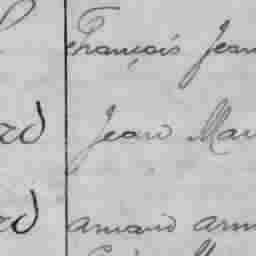 François Jean
rd Jean Mar
rd Amand Arm